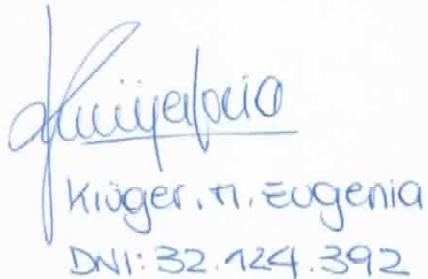 Krüger, M. Eugenia
DNI: 32.124.392